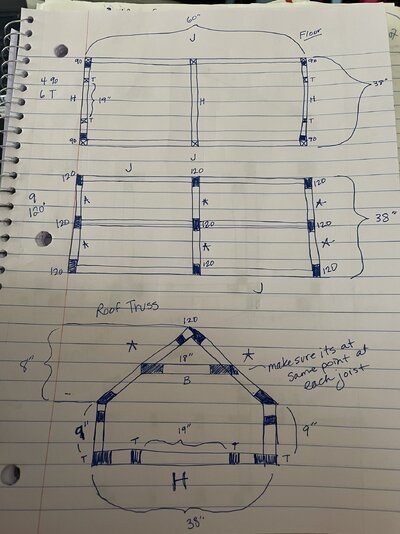 60"
J
Floor
90 90
4 90 T T
6 T
H 19" H H 38"
T T
90 90
J
J
120 120 120
9 A A A
120°
120 120 120 38"
A A A
120 120 120
J
Roof Truss
120
A A
18"
make sure its at
same point at
each joist
8"
B
9" 19" 9"
T T T T
H
38"